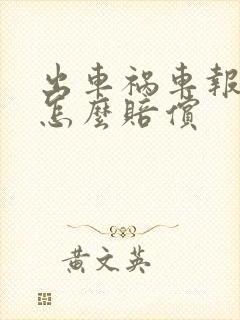 出車禍車報
怎麼賠償
黃文英